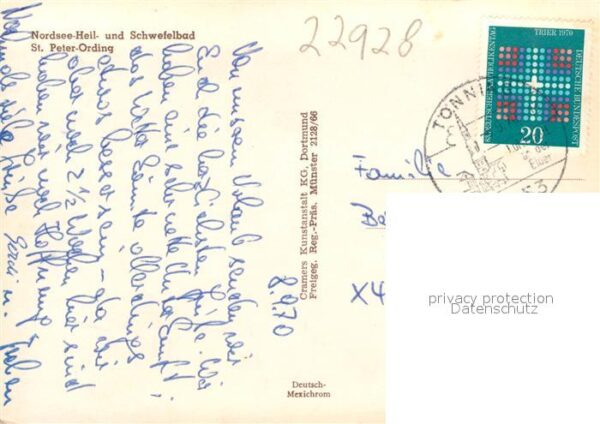 Nordsee-Heil- und Schwefelbad
St. Peter-Ording
22928
DEUTSCHER KATHOLIKENTAG
TRIER 1970
DEUTSCHE BUNDESPOST
20
TÖNNI
Eider
53
8.9.70
Von unserem Urlaub senden wir
Euch die herzlichsten Grüße. Wir
haben eine sehr nette Unterkunft,
das Wetter könnte allerdings
etwas besser sein – da wir
aber noch 2 ½ Wochen hier sind
haben wir noch Hoffnung.
Nochmals viele Grüße
Cramers Kunstanstalt KG, Dortmund
Freigeg. Reg.-Präs. Münster 2128/66
Familie
X4
privacy protection
Datenschutz
Deutsch-
Mexichrom